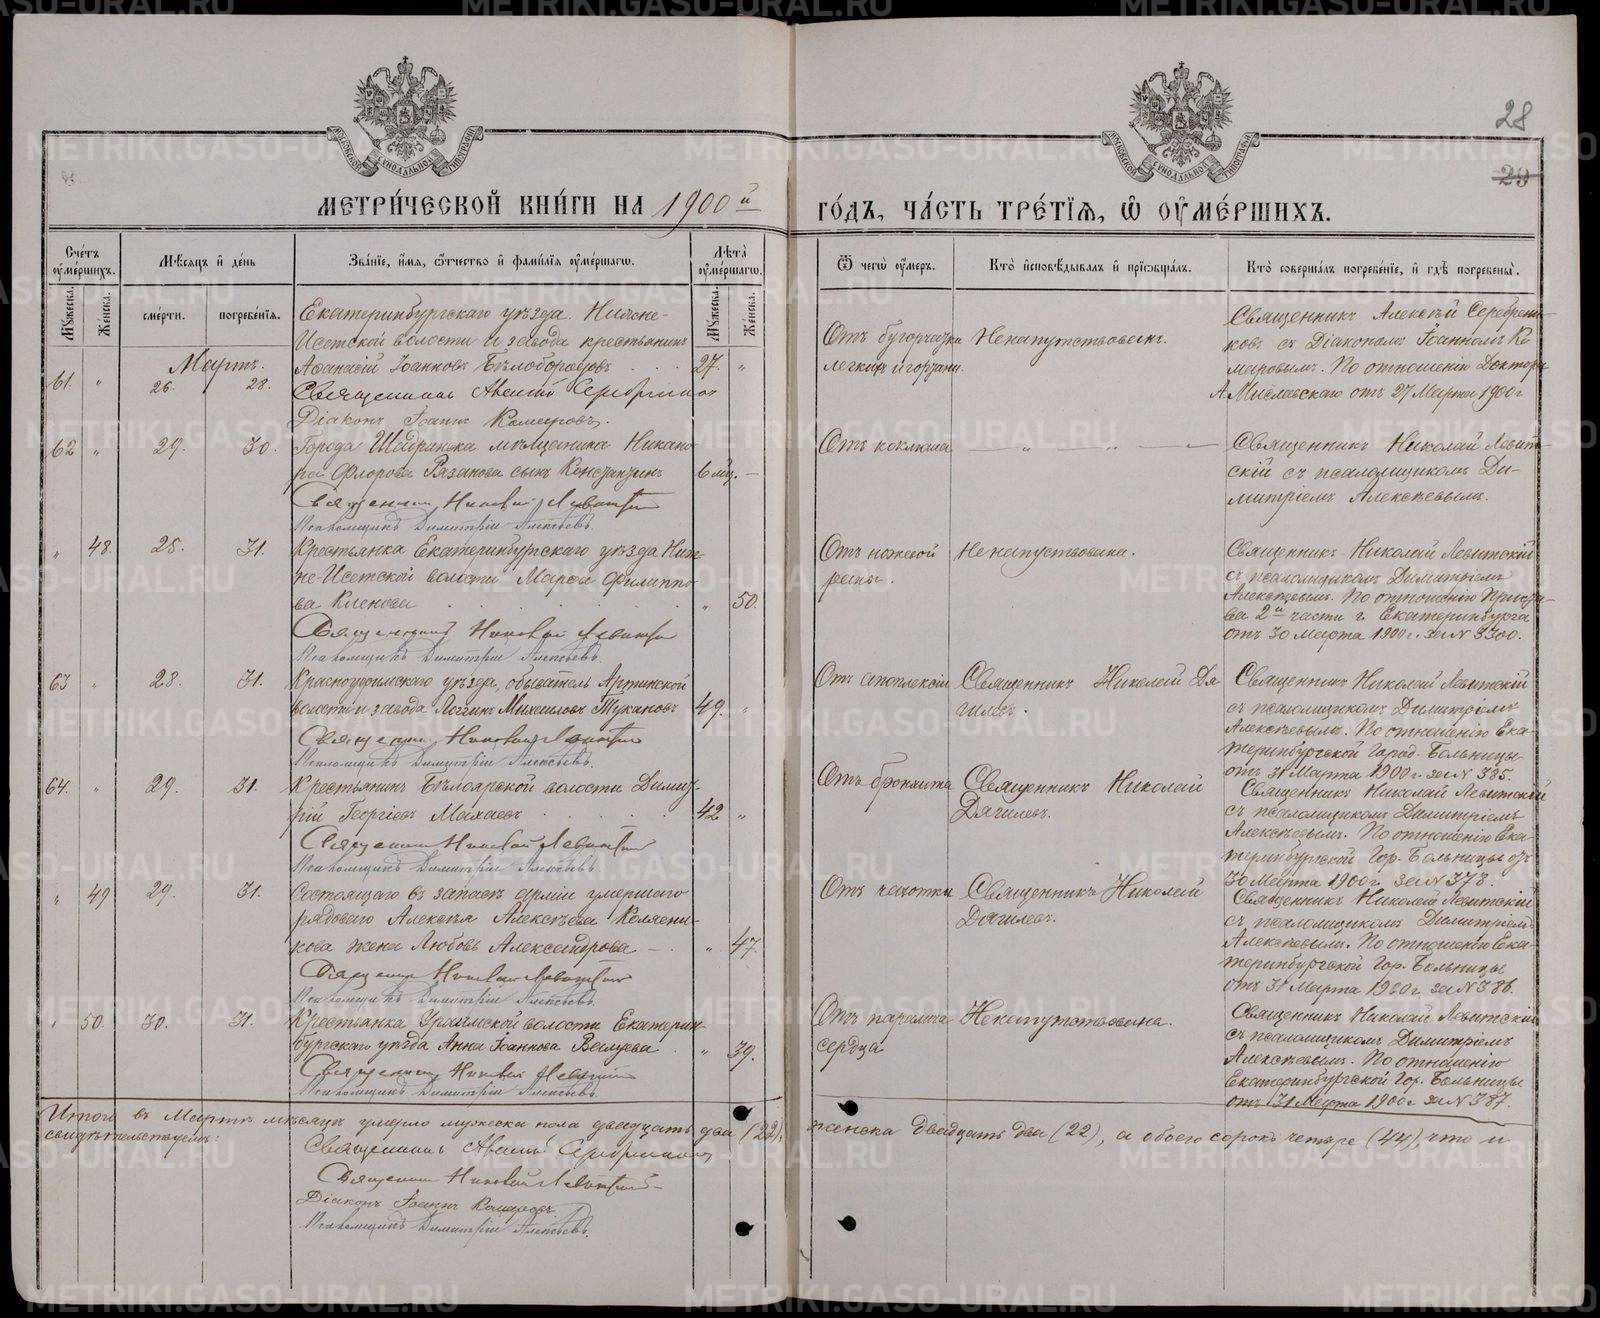 28
29
МОСКОВСКОЙ СУНОДАЛЬНОЙ ТИПОГРАФІИ
МОСКОВСКОЙ СУНОДАЛЬНОЙ ТИПОГРАФІИ
МЕТРИ́ЧЕСКОЙ КНИ́ГИ НА 1900й ГО́ДЪ, ЧА́СТЬ ТРЕ́ТІЯ, Ѿ ОУ҆МЕ́РШИХЪ.
Сче́тъ оу҆ме́ршихъ.
Му́жеска.
Же́нска.
Мѣ́сяцъ и҆ де́нь
сме́рти.
погребе́нія.
Зва́ніе, и҆́мя, ѻ҆́тчество и҆ фами́лія оу҆ме́ршагѡ.
Лѣ́та оу҆ме́ршагѡ.
Му́жеска.
Же́нска.
Ѿ чегѡ̀ оу҆́меръ.
Кто̀ и҆сповѣ́дывалъ и҆ прїѡбща́лъ.
Кто̀ соверша́лъ погребе́ніе, и҆ гдѣ̀ погребены̀.
Мартъ.
61. " 26. 28.
Екатеринбургскаго уѣзда. Нижне-
Исетской волости и завода крестьянинъ
Аѳанасій Іоанновъ Бѣлобородовъ . . . 27. "
Священникъ Алексій Серебренниковъ
Діаконъ Іоаннъ Комаровъ.
Отъ бугорчатки
легкихъ и гортани.
Ненапутствованъ.
Священникъ Алексѣй Серебренни-
ковъ съ Діакономъ Іоанномъ Ко
маровымъ. По отношенію Доктора
А. Миславскаго отъ 27 Марта 1900 г
62 " 29. 30.
Города Шадринска мѣщанина Никано
ра Флорова Рязанова сынъ Константинъ 6 мц. —
Священникъ Николай Левитскій
Псаломщикъ Димитрій Алексѣевъ.
Отъ коклюша
— " — " —
Священникъ Николай Левит-
скій съ псаломщикомъ Ди-
митріемъ Алексѣевымъ.
" 48. 25. 31.
Крестьянка Екатеринбургскаго уѣзда Ниж-
не-Исетской волости Марѳа Филиппо-
ва Кленова . . . . . " 50.
Священникъ Николай Левитскій
Псаломщикъ Димитрій Алексѣевъ.
Отъ ножевой
раны.
Ненапутствована.
Священникъ Николай Левитскій
съ псаломщикомъ Димитріемъ
Алексѣевымъ. По отношенію Приста-
ва 2й части г. Екатеринбурга
отъ 30 Марта 1900 г. за № 3300.
63 " 28. 31.
Красноуфимскаго уѣзда, обыватель Артинской
волости и завода Логгинъ Михаиловъ Тукановъ 49. "
Священникъ Николай Левитскій
Псаломщикъ Димитрій Алексѣевъ.
Отъ апоплексіи
Священникъ Николай Дя
гилевъ.
Священникъ Николай Левитскій
съ псаломщикомъ Димитріемъ
Алексѣевымъ. По отношенію Ека-
теринбургской Город. Больницы
отъ 31 Марта 1900 г. за № 385.
64. " 29. 31.
Крестьянинъ Бѣлоярской волости Димит-
рій Георгіевъ Махаевъ . . . . 42 "
Священникъ Николай Левитскій
Псаломщикъ Димитрій Алексѣевъ.
Отъ бронхита
Священникъ Николай
Дягилевъ.
Священникъ Николай Левитскій
съ псаломщикомъ Димитріемъ
Алексѣевымъ. По отношенію Ека-
теринбургской Гор. Больницы отъ
30 Марта 1900 г. за № 378.
" 49 29. 31.
Состоящаго въ запасѣ арміи умершаго
рядового Алексѣя Алексѣева
кова жена Любовь Александрова — " 47.
Священникъ Николай Левитскій
Псаломщикъ Димитрій Алексѣевъ.
Отъ чахотки
Священникъ Николай
Дягилевъ.
Священникъ Николай Левитскій
съ псаломщикомъ Димитріемъ
Алексѣевымъ. По отношенію Ека-
теринбургской Гор. Больницы
отъ 31 Марта 1900 г. за № 386.
" 50. 30. 31.
Крестьянка волости Екатерин-
бургскаго уѣзда Анна Іоаннова Валуева . " 39.
Священникъ Николай Левитскій
Псаломщикъ Димитрій Алексѣевъ.
Отъ паралича
сердца
Ненапутствована.
Священникъ Николай Левитскій
съ псаломщикомъ Димитріемъ
Алексѣевымъ. По отношенію
Екатеринбургской Гор. Больницы
отъ 31 Марта 1900 г за № 387.
Итого въ Мартѣ мѣсяцѣ умерло мужеска пола двадцать два (22), женска двадцать два (22), а обоего сорокъ четыре (44), что и
свидѣтельствуемъ:
Священникъ Алексій Серебренниковъ
Священникъ Николай Левитскій
Діаконъ Іоаннъ Комаровъ.
Псаломщикъ Димитрій Алексѣевъ.
METRIKI.GASO-URAL.RU